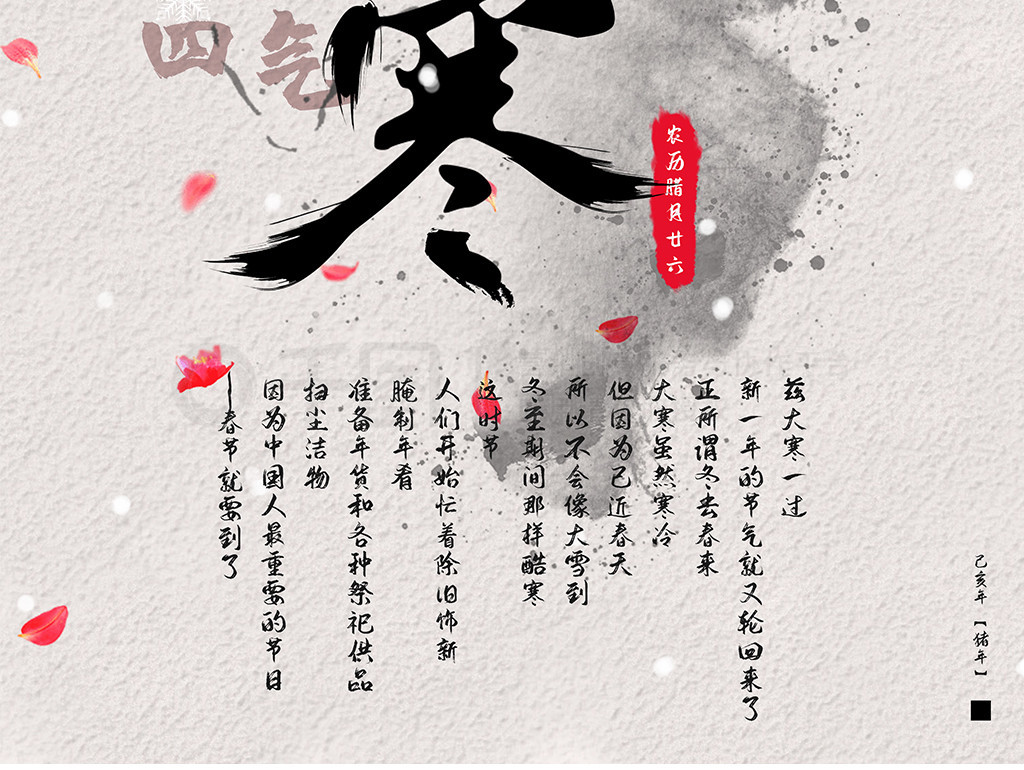 四气
寒
农历腊月廿六
兹大寒一过
新一年的节气就又轮回来了
正所谓冬去春来
大寒虽然寒冷
但因为已近春天
所以不会像大雪到
冬至期间那样酷寒
这时节
人们开始忙着除旧饰新
腌制年肴
准备年货和各种祭祀供品
扫尘洁物
因为中国人最重要的节日
—春节就要到了
己亥年【猪年】